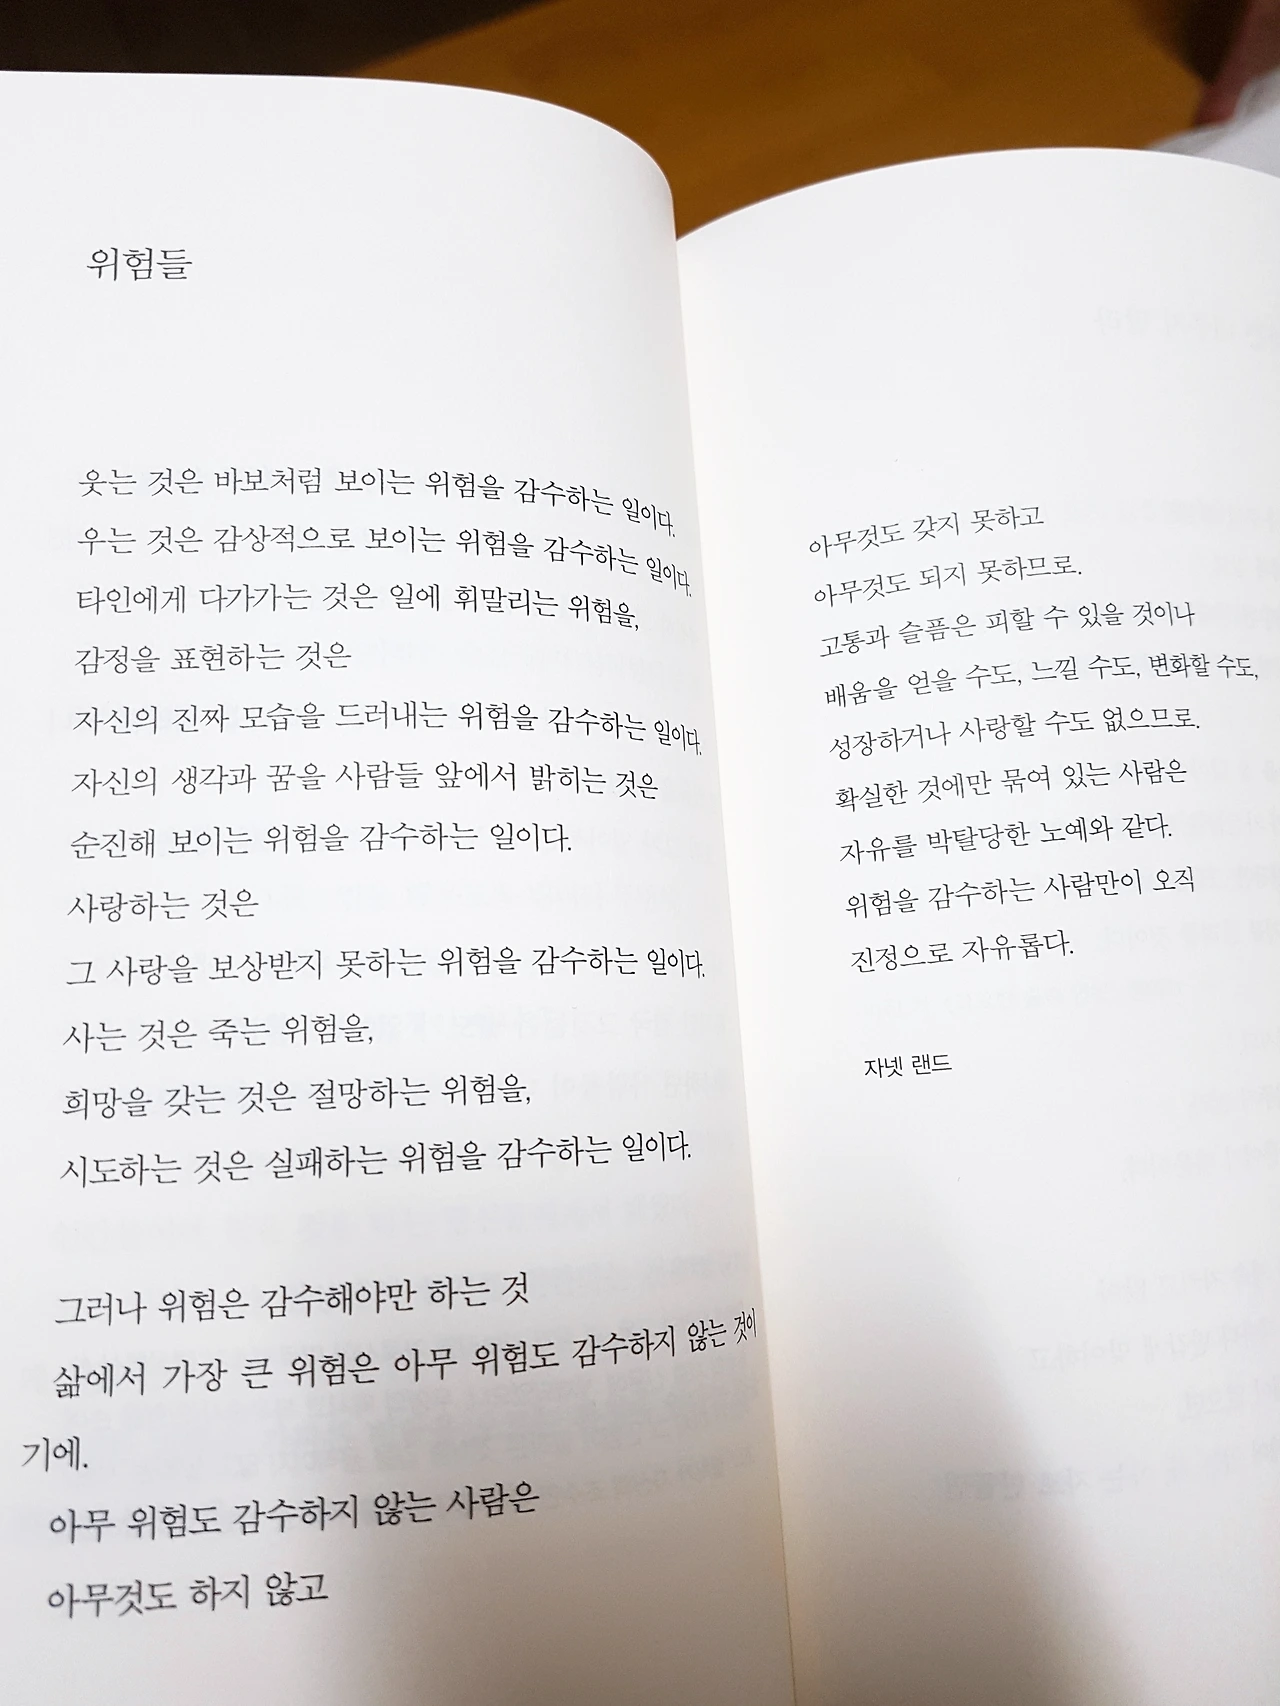 위험들
웃는 것은 바보처럼 보이는 위험을 감수하는 일이다.
우는 것은 감상적으로 보이는 위험을 감수하는 일이다.
타인에게 다가가는 것은 일에 휘말리는 위험을,
감정을 표현하는 것은
자신의 진짜 모습을 드러내는 위험을 감수하는 일이다.
자신의 생각과 꿈을 사람들 앞에서 밝히는 것은
순진해 보이는 위험을 감수하는 일이다.
사랑하는 것은
그 사랑을 보상받지 못하는 위험을 감수하는 일이다.
사는 것은 죽는 위험을,
희망을 갖는 것은 절망하는 위험을,
시도하는 것은 실패하는 위험을 감수하는 일이다.
그러나 위험은 감수해야만 하는 것
삶에서 가장 큰 위험은 아무 위험도 감수하지 않는 것이
기에.
아무 위험도 감수하지 않는 사람은
아무것도 하지 않고
아무것도 갖지 못하고
아무것도 되지 못하므로.
고통과 슬픔은 피할 수 있을 것이나
배움을 얻을 수도, 느낄 수도, 변화할 수도,
성장하거나 사랑할 수도 없으므로.
확실한 것에만 묶여 있는 사람은
자유를 박탈당한 노예와 같다.
위험을 감수하는 사람만이 오직
진정으로 자유롭다.
자넷 랜드